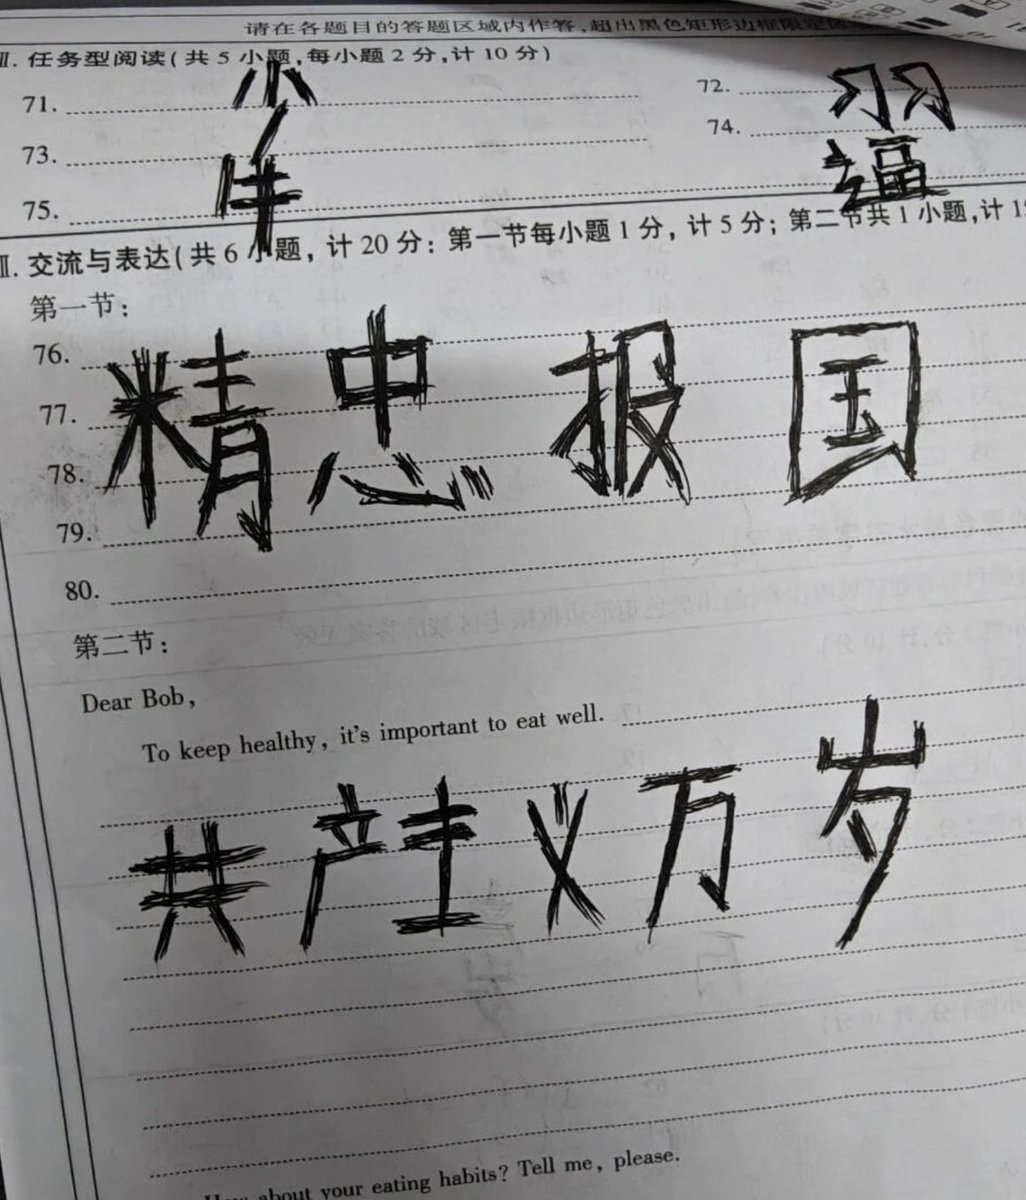 请在各题目的答题区域内作答,超出黑色矩形边框限定区
Ⅶ. 任务型阅读(共 5 小题,每小题 2 分,计 10 分)
71. 小 72. 习习
73. 74.
75. 件 逼
Ⅷ. 交流与表达(共 6 小题, 计 20 分: 第一节每小题 1 分, 计 5 分; 第二节共 1 小题,计 15
第一节:
76.
77.
78.
79.
80.
精忠报国
第二节:
Dear Bob,
To keep healthy, it's important to eat well.
共产主义万岁
How about your eating habits? Tell me, please.